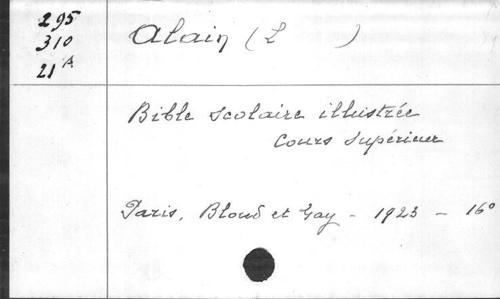 295
310
21 A
Alain (L )
Bible scolaire illustrée
Cours supérieur
Paris, Bloud et Gay - 1923 - 16°